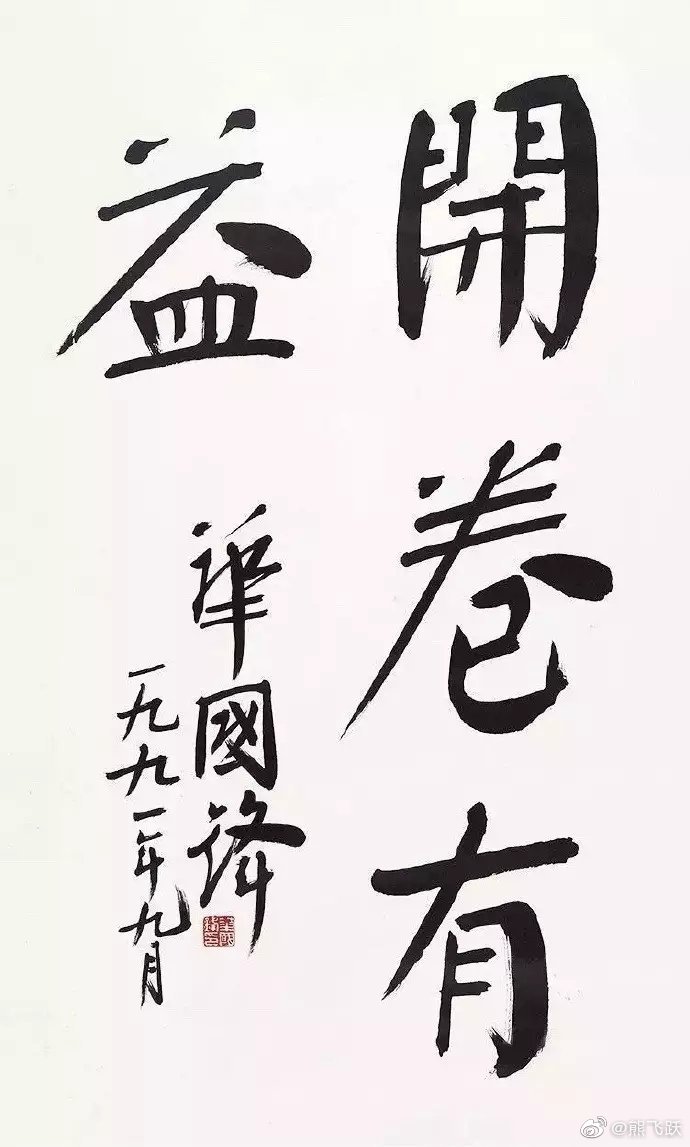 開卷有
益
華國鋒
一九九一年九月
@熊飞跃